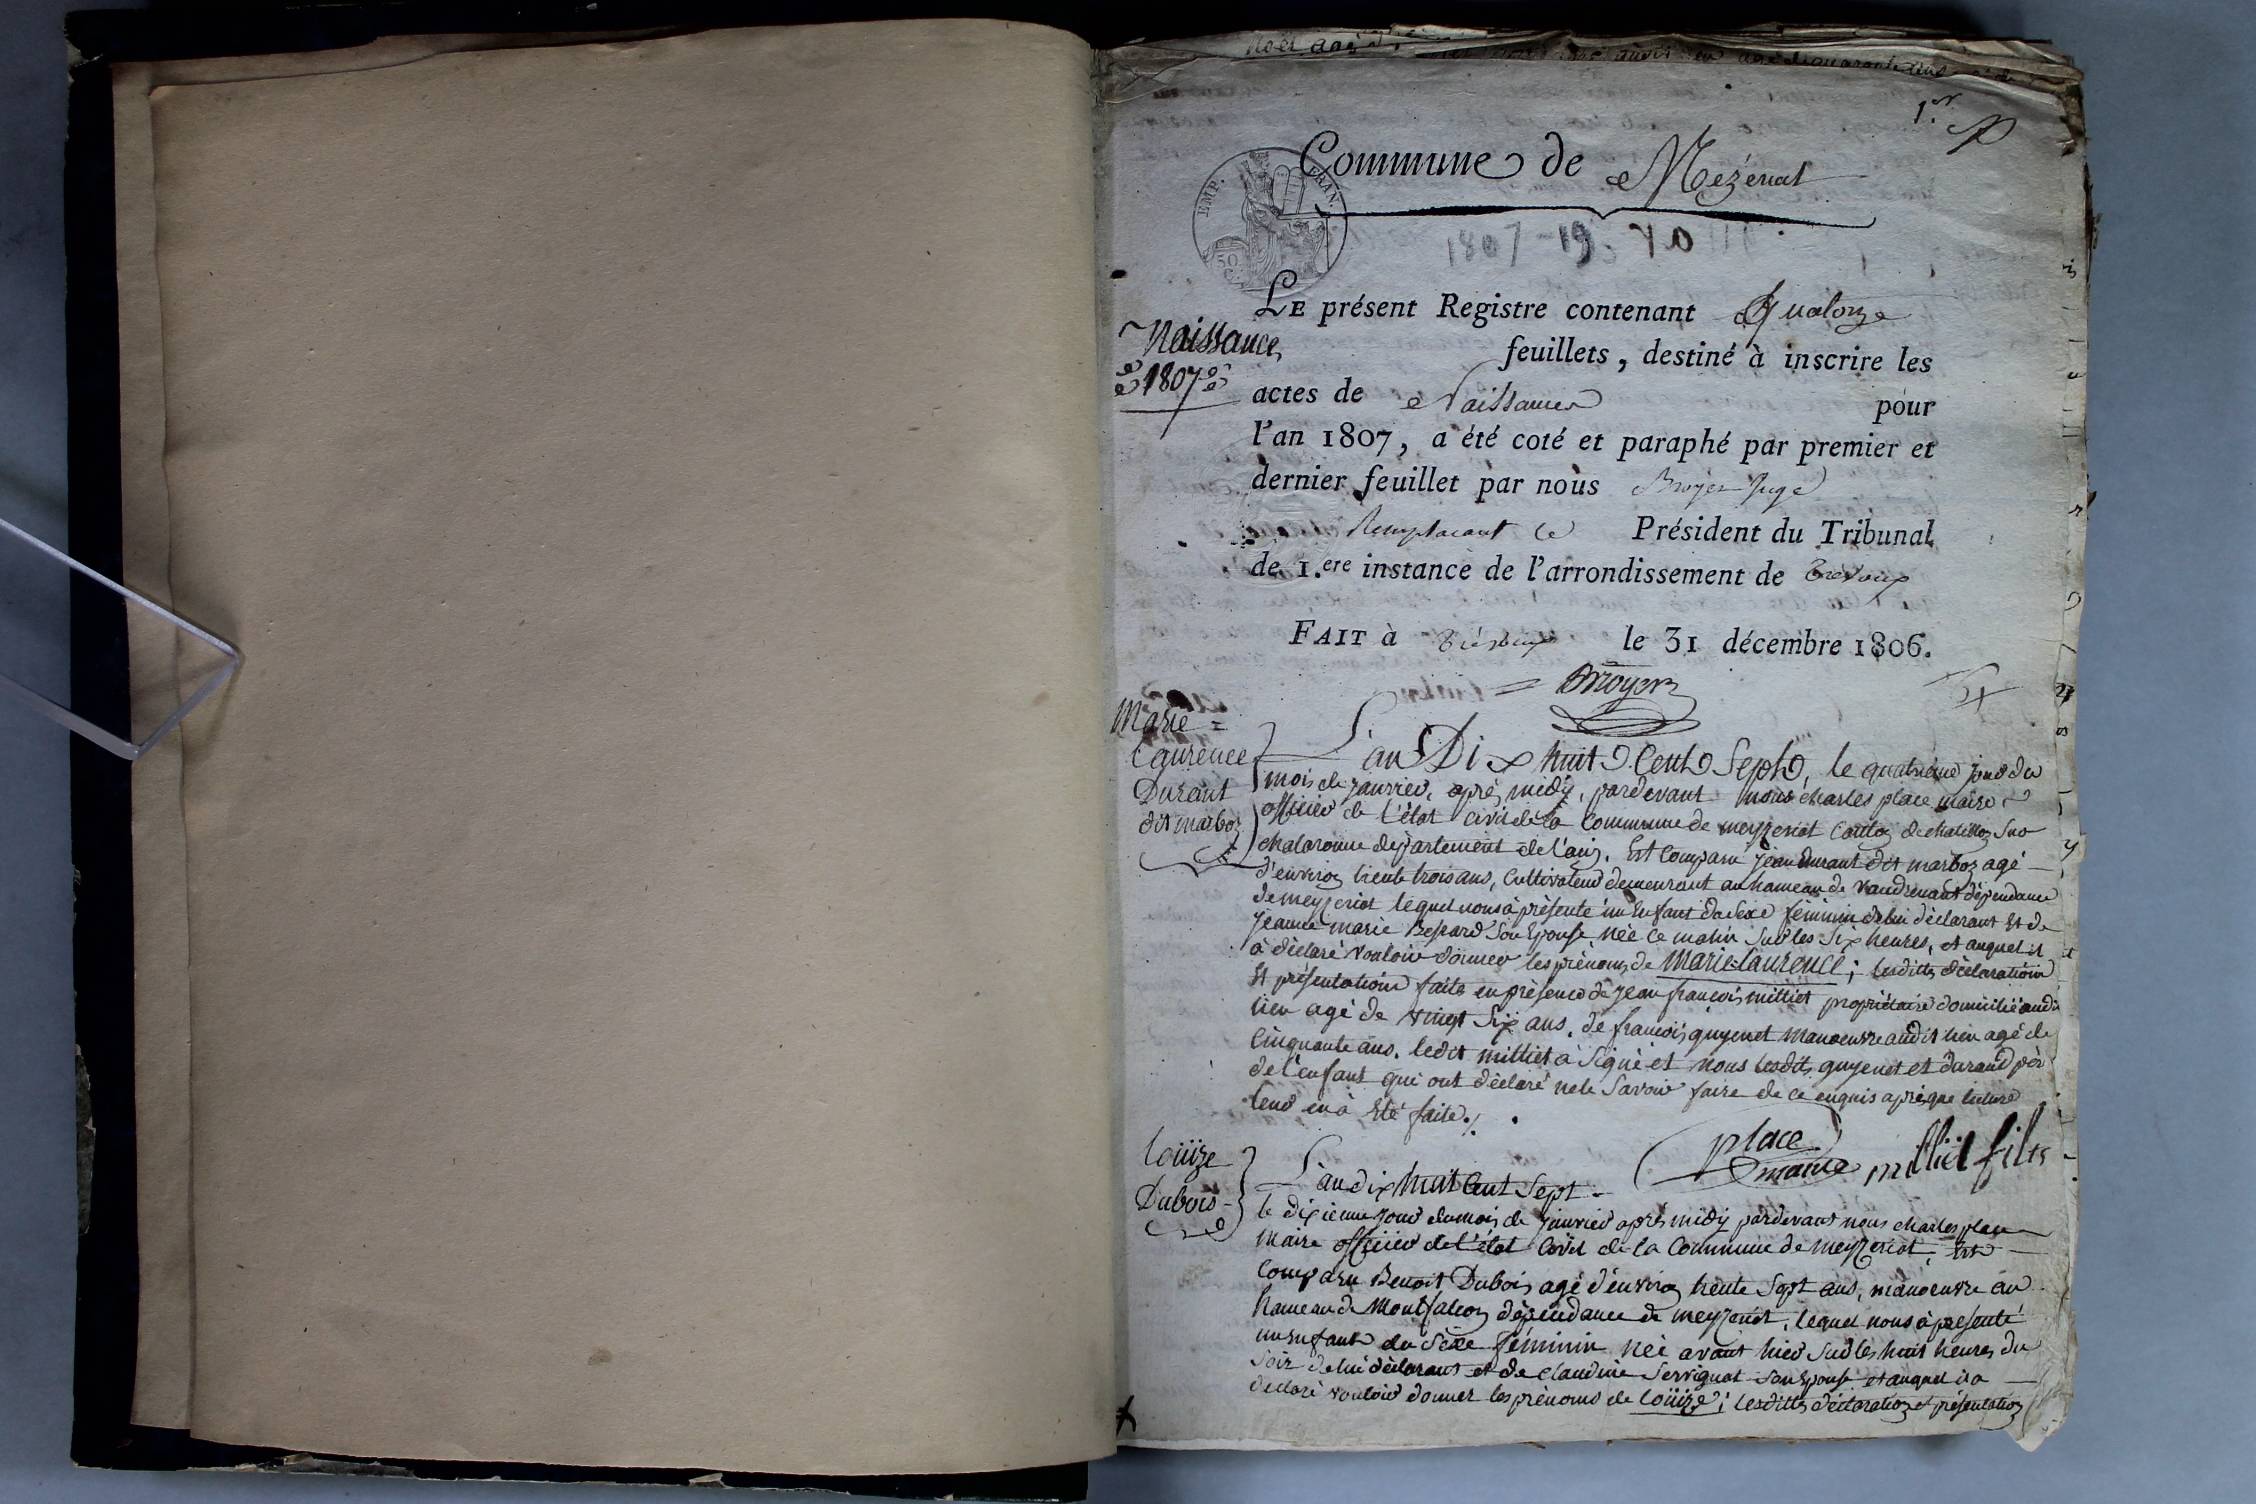 1.er
Commune de Mézériat
EMP. FRAN.
50 C.
1807-19
LE présent Registre contenant quatorze
feuillets, destiné à inscrire les
Naissances
1807
actes de Naissances pour
l'an 1807, a été coté et paraphé par premier et
dernier feuillet par nous Broyer Juge
Remplacant le Président du Tribunal
de 1.ere instance de l'arrondissement de Trévoux
FAIT à Trévoux le 31 décembre 1806.
Broyer
Marie =
Laurence
Durant
dit marboz
L'an Dix huit Cent Sept, le quatrième jour du
mois de janvier, après midÿ, pardevant nous charles place maire
officier de l'état civil de la Commune de meyzeriat Canton de chatillon sur
chalaronne département de l'ain. Est Comparu jean Durant dit marboz agé
d'environ trente trois ans, Cultivateur demeurant au hameau de Vaudrenant dépendance
de meyzeriat lequel nous à présenté un Enfant du Sexe féminin de lui déclarant Et de
jeanne marie Besard Son Epouse, née ce matin sur les Six heures, et auquel il
à déclaré vouloir donner les prénoms de Marie-Laurence; lesdittes déclaration
Et présentation faite en présence de jean francois milliet propriétaire domicilié audit
lieu agé de vingt Six ans. de francois guyenet manoeuvre audit lieu agé de
Cinquante ans. ledit milliet à Signé et nous lesdits guyenet et durand père
de l'enfant qui ont déclaré ne le Savoir faire de ce enquis après que lecture
leur en à Eté faite./.
place maire milliet fils
Loüize
Dubois
L'an dix huit Cent Sept
le dixieme jour du mois de janvier après midÿ pardevant nous charles place
maire officier de l'état Civil de la Commune de meyzeriat, Est
Comparu Benoit Dubois agé d'environ trente Sept ans, manoeuvre au
hameau de Montfalcon dépendance de meyzeriat, lequel nous à présenté
un Enfant du Sexe féminin née avant hier sur les huit heures du
Soir de lui déclarant et de claudine Servignat son Epouse et auquel il a
déclaré vouloir donner les prénoms de Loüize; lesdittes déclaration et présentation